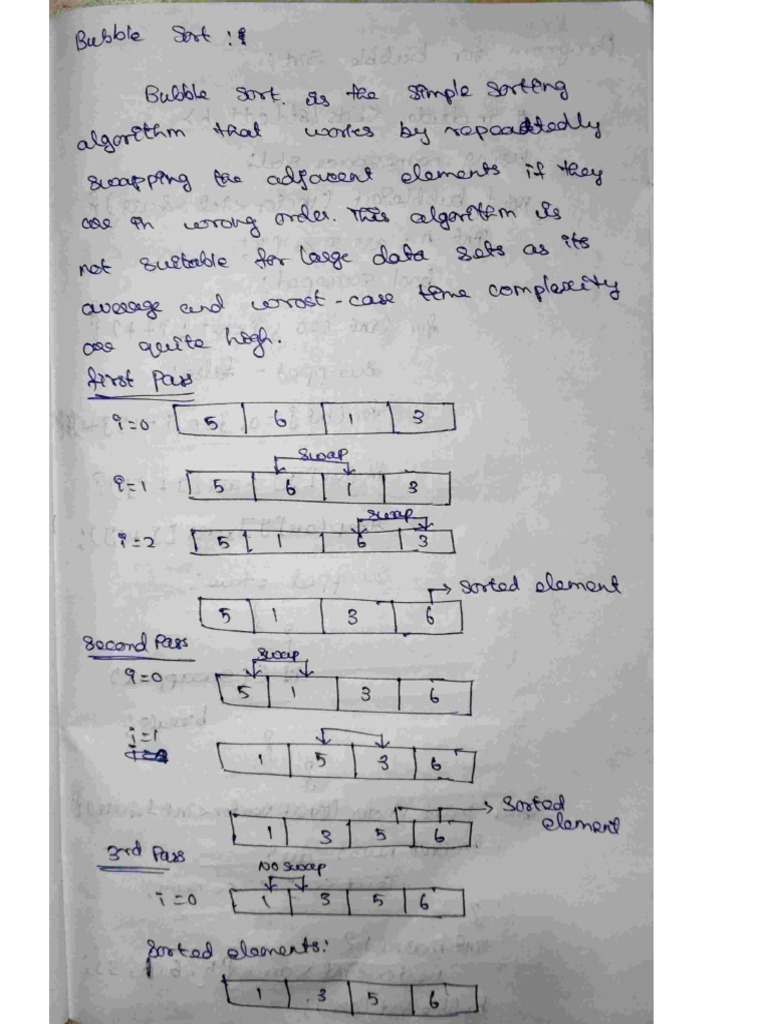 Bubble Sort :
Bubble sort. is the simple sorting
algorithm that works by repeadtedly
swapping the adjacent elements if they
are in wrong order. This algorithm is
not suitable for large data sets as its
average and wrost-case time complexity
are quite high.
first Pass
i=0 5 6 1 3
swap
i=1 5 6 1 3
swap
i=2 5 1 6 3
→ sorted element
5 1 3 6
Second Pass
swap
i=0 5 1 3 6
i=1
1 5 3 6
→ sorted
element
1 3 5 6
3rd Pass
no swap
i=0 1 3 5 6
Sorted elements:
1 3 5 6